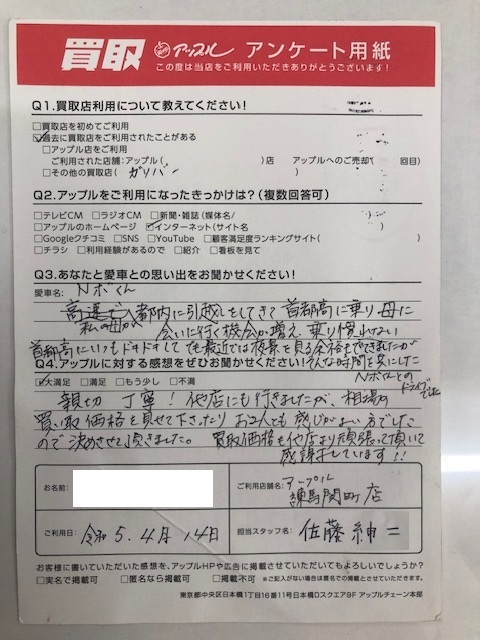 買取 アップル アンケート用紙
この度は当店をご利用いただきありがとうございます!
Q1.買取店利用について教えてください!
□買取店を初めてご利用
☑過去に買取店をご利用されたことがある
□アップル店をご利用
ご利用された店舗:アップル( )店 アップルへのご売却( 回目)
□その他の買取店( ガリバー )
Q2.アップルをご利用になったきっかけは?(複数回答可)
□テレビCM □ラジオCM □新聞・雑誌(媒体名/
□アップルのホームページ ☑インターネット(サイト名 )
□Googleクチコミ □SNS □YouTube □顧客満足度ランキングサイト( )
□チラシ □利用経験があるので □紹介 □看板を見て
Q3.あなたと愛車との思い出をお聞かせください!
愛車名: Nボくん
都内に引越しをしてきて首都高に乗り母に
私の母が 会いに行く機会が増え、乗り慣れない
首都高にいつもドキドキしてても最近では夜景を見る余裕もできましたが
そんな時間を共にした
Nボくんとの
ドライブでした
Q4.アップルに対する感想をぜひお聞かせください!
☑大満足 □満足 □もう少し □不満
親切 丁寧! 他店にも行きましたが、相場の
買い取価格を見せて下さったり お2人とも感じがよい方でした
ので決めさせて頂きました。 買取価格も他店より頑張って頂いて
感謝しています!!
お名前:
ご利用店舗名: アープル
練馬関町店
ご利用日: 令和5.4月14日
担当スタッフ名: 佐藤紳二
お客様に書いていただいた感想を、アップルHPや広告に掲載させていただいてもよろしいでしょうか?
□実名で掲載可 □匿名なら掲載可 □掲載不可 ※ご記入がない場合は匿名での掲載とさせていただきます。
東京都中央区日本橋1丁目16番11号日本橋Dスクエア9F アップルチェーン本部